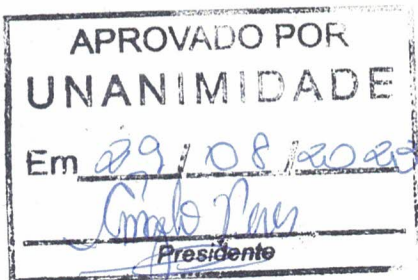 APROVADO POR
UNANIMIDADE
Em 29 / 08 /
Presidente